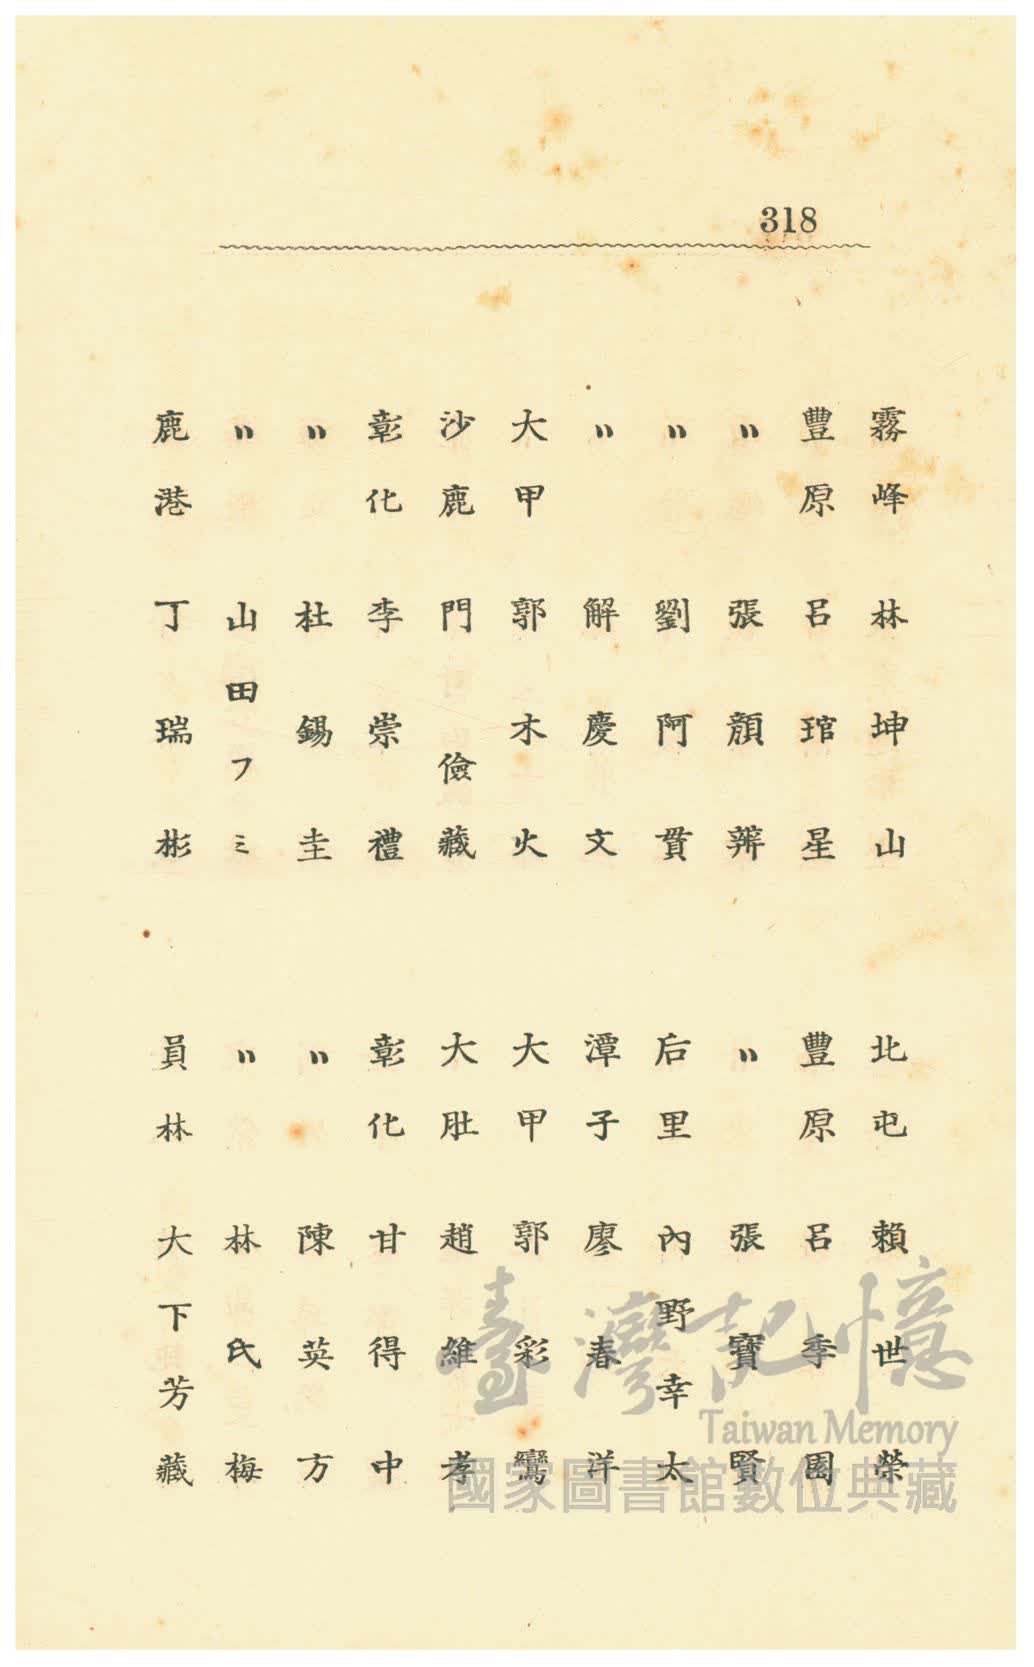 318
霧峰 林坤山
豐原 呂琯星
〃 張顏辨
〃 劉阿貫
〃 解慶文
大甲 郭木火
沙鹿 門儉藏
彰化 李崇禮
〃 杜錫圭
〃 山田フミ
鹿港 丁瑞彬
北屯 賴世榮
豐原 呂季園
〃 張寶賢
后里 內野幸太
潭子 廖春洋
大甲 郭彩鸞
大肚 趙維孝
彰化 甘得中
〃 陳英方
〃 林氏梅
員林 大下芳藏
臺灣記憶
Taiwan Memory
國家圖書館數位典藏